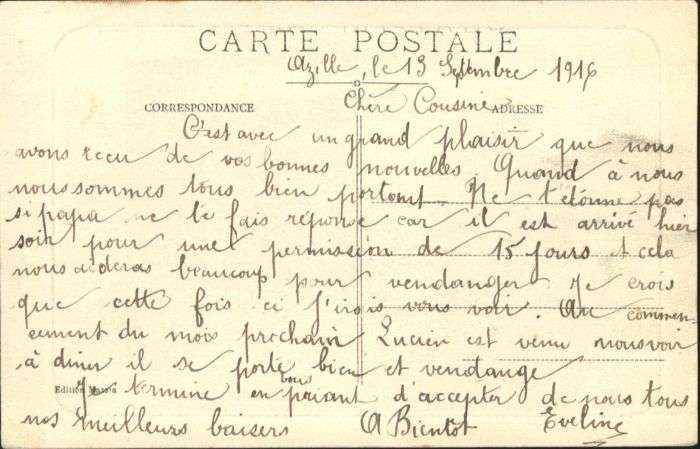 CARTE POSTALE
Azille, le 13 Septembre 1916
CORRESPONDANCE
Chère Cousine
ADRESSE
C'est avec un grand plaisir que nous
avons recu de vos bonnes nouvelles. Quand à nous
nous sommes tous bien portant. Ne t'étonne pas
si papa ne te fais réponse car il est arrivé hier
soir pour une permission de 15 jours et cela
nous aideras beaucoup pour vendanger. Je crois
que cette fois ci j'irois vous voir. Au commen-
cement du mois prochain Lucien est venu nous voir
à diner il se porte bien et vendange
Edition
Je termine en vous priant d'accepter de nous tous
nos meilleurs baisers A Bientot Eveline